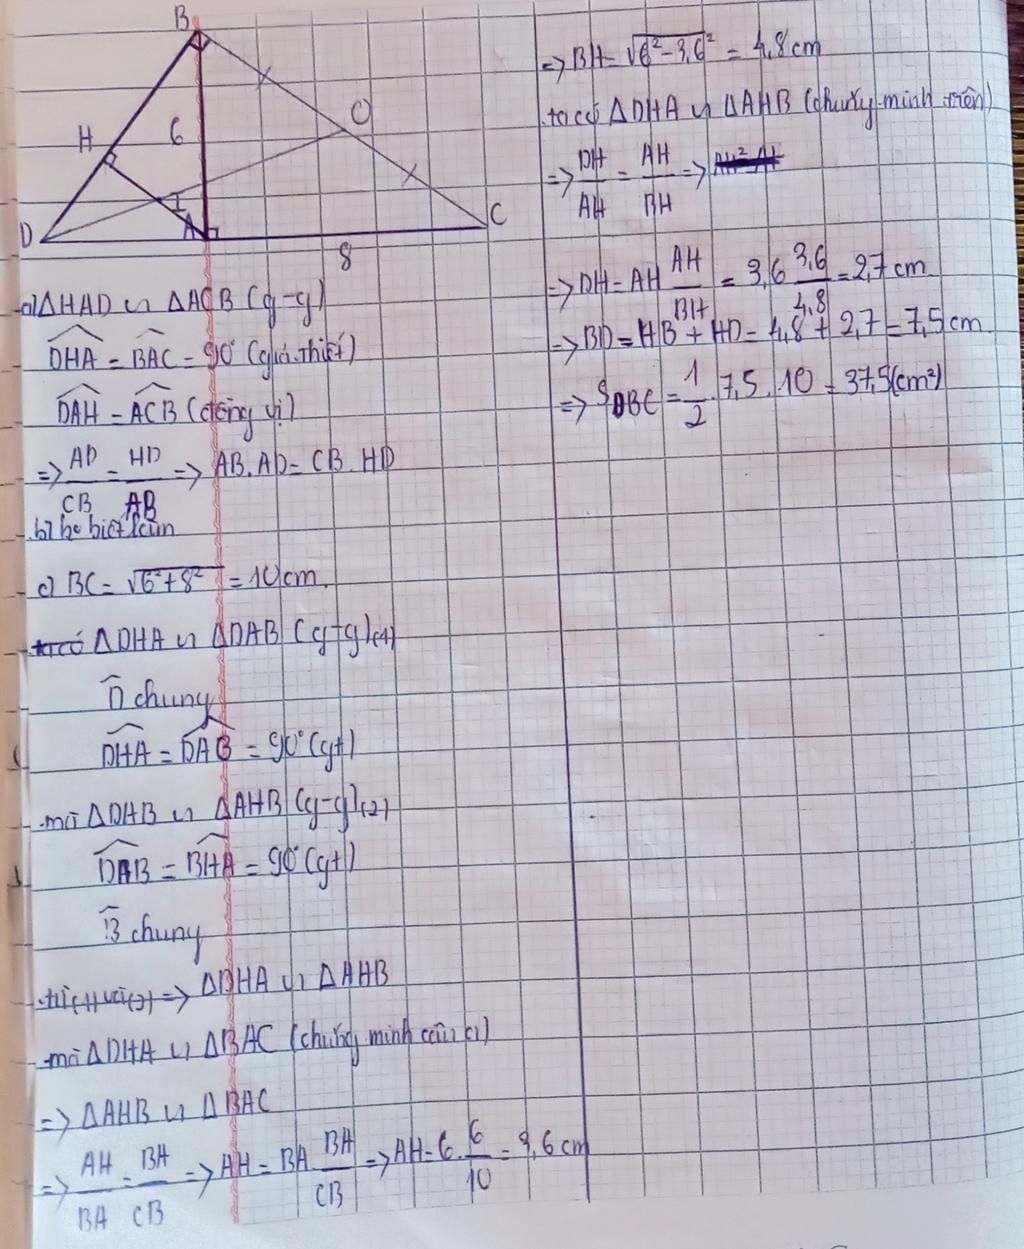 B
O
H
6
I
D
A
C
8
a) ΔHAD ∽ ΔACB (g-g)
DHA = BAC = 90° (giả thiết)
DAH = ACB (đồng vị)
=> AD/CB = HD/AB => AB.AD = CB.HD
b)
c) BC = √6²+8² = 10cm.
ta có ΔDHA ∽ ΔDAB (g-g)(1)
D chung
DHA = DAB = 90° (gt)
mà ΔDHB ∽ ΔAHB (g-g)(2)
DAB = BHA = 90° (gt)
B chung
từ (1) và (2) => ΔDHA ∽ ΔAHB
mà ΔDHA ∽ ΔBAC (chứng minh câu a)
=> ΔAHB ∽ ΔBAC
=> AH/BA = BA/CB => AH = BA BA/CB => AH = 6. 6/10 = 3,6 cm
=> BH = √6²-3,6² = 4,8cm
ta có ΔDHA ∽ ΔAHB (chứng minh trên)
=> DH/AH = AH/BH =>
=> DH = AH AH/BH = 3,6 3,6/4,8 = 2,7 cm
=> BD = HB + HD = 4,8 + 2,7 = 7,5 cm.
=> SDBC = 1/2 . 7,5 . 10 = 37,5 (cm²)